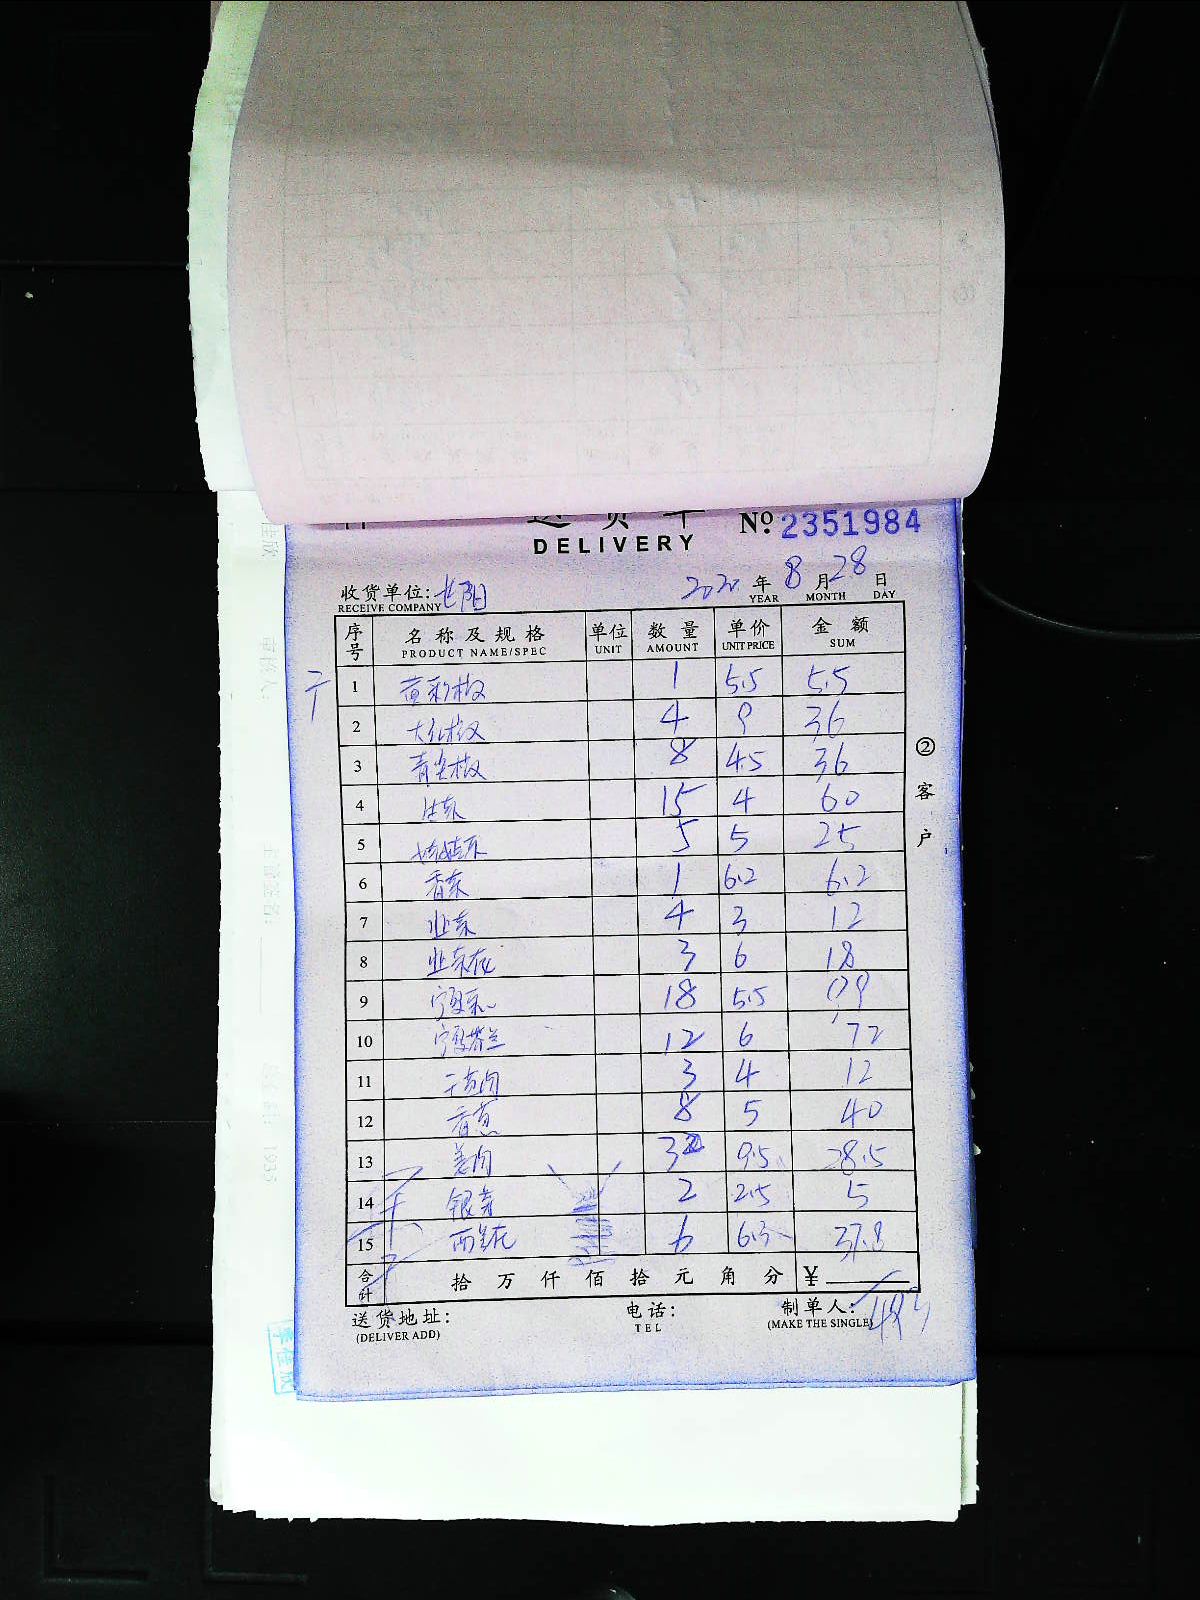 送货单 No 2351984
DELIVERY
收货单位: 2020 年 8 月 28 日
RECEIVE COMPANY YEAR MONTH DAY
序号 名称及规格 单位 数量 单价 金额
PRODUCT NAME/SPEC UNIT AMOUNT UNIT PRICE SUM
1 黄彩椒 1 5.5 5.5
2 大红椒 4 9 36
3 青尖椒 8 4.5 36
4 15 4 60
5 5 5 25
6 香菜 1 6.2 6.2
7 4 3 12
8 3 6 18
9 宁夏菜心 18 5.5 99
10 宁夏芥兰 12 6 72
11 3 4 12
12 香葱 8 5 40
13 姜肉 3 9.5 28.5
14 银芽 2 2.5 5
15 西兰花 6 6.3 37.8
合计 拾 万 仟 佰 拾 元 角 分 ¥
493
送货地址: 电话: 制单人:
(DELIVER ADD) TEL (MAKE THE SINGLE)
② 客户
李佳欣